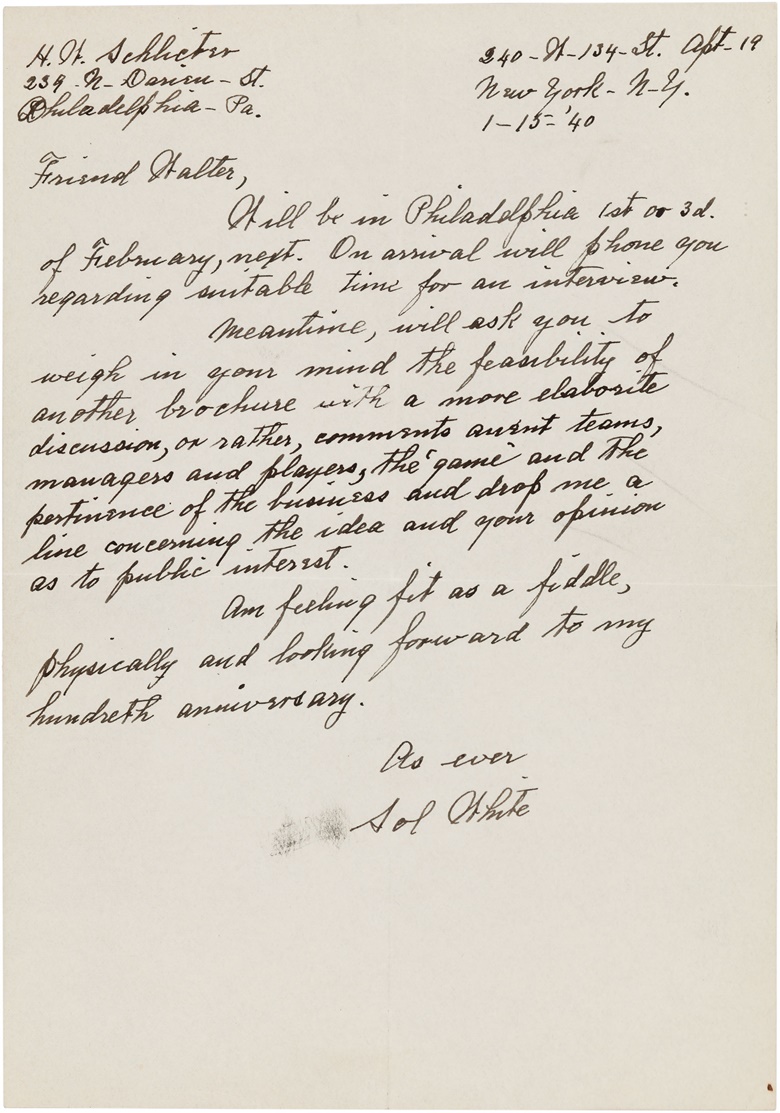 H. W. Schlicter
239 - N - Darien - St.
Philadelphia - Pa.
240 - W - 134 - St. Apt - 19
New York - N - Y.
1 - 15 - '40
Friend Walter,
Will be in Philadelphia 1st or 3d.
of February, next. On arrival will phone you
regarding suitable time for an interview.
Meantime, will ask you to
weigh in your mind the feasibility of
another brochure with a more elaborite
discussion, or rather, comments anent teams,
managers and players, the "game" and the
pertinence of the business and drop me a
line concerning the idea and your opinion
as to public interest.
Am feeling fit as a fiddle,
physically and looking forward to my
hundreth anniversary.
As ever
Sol White